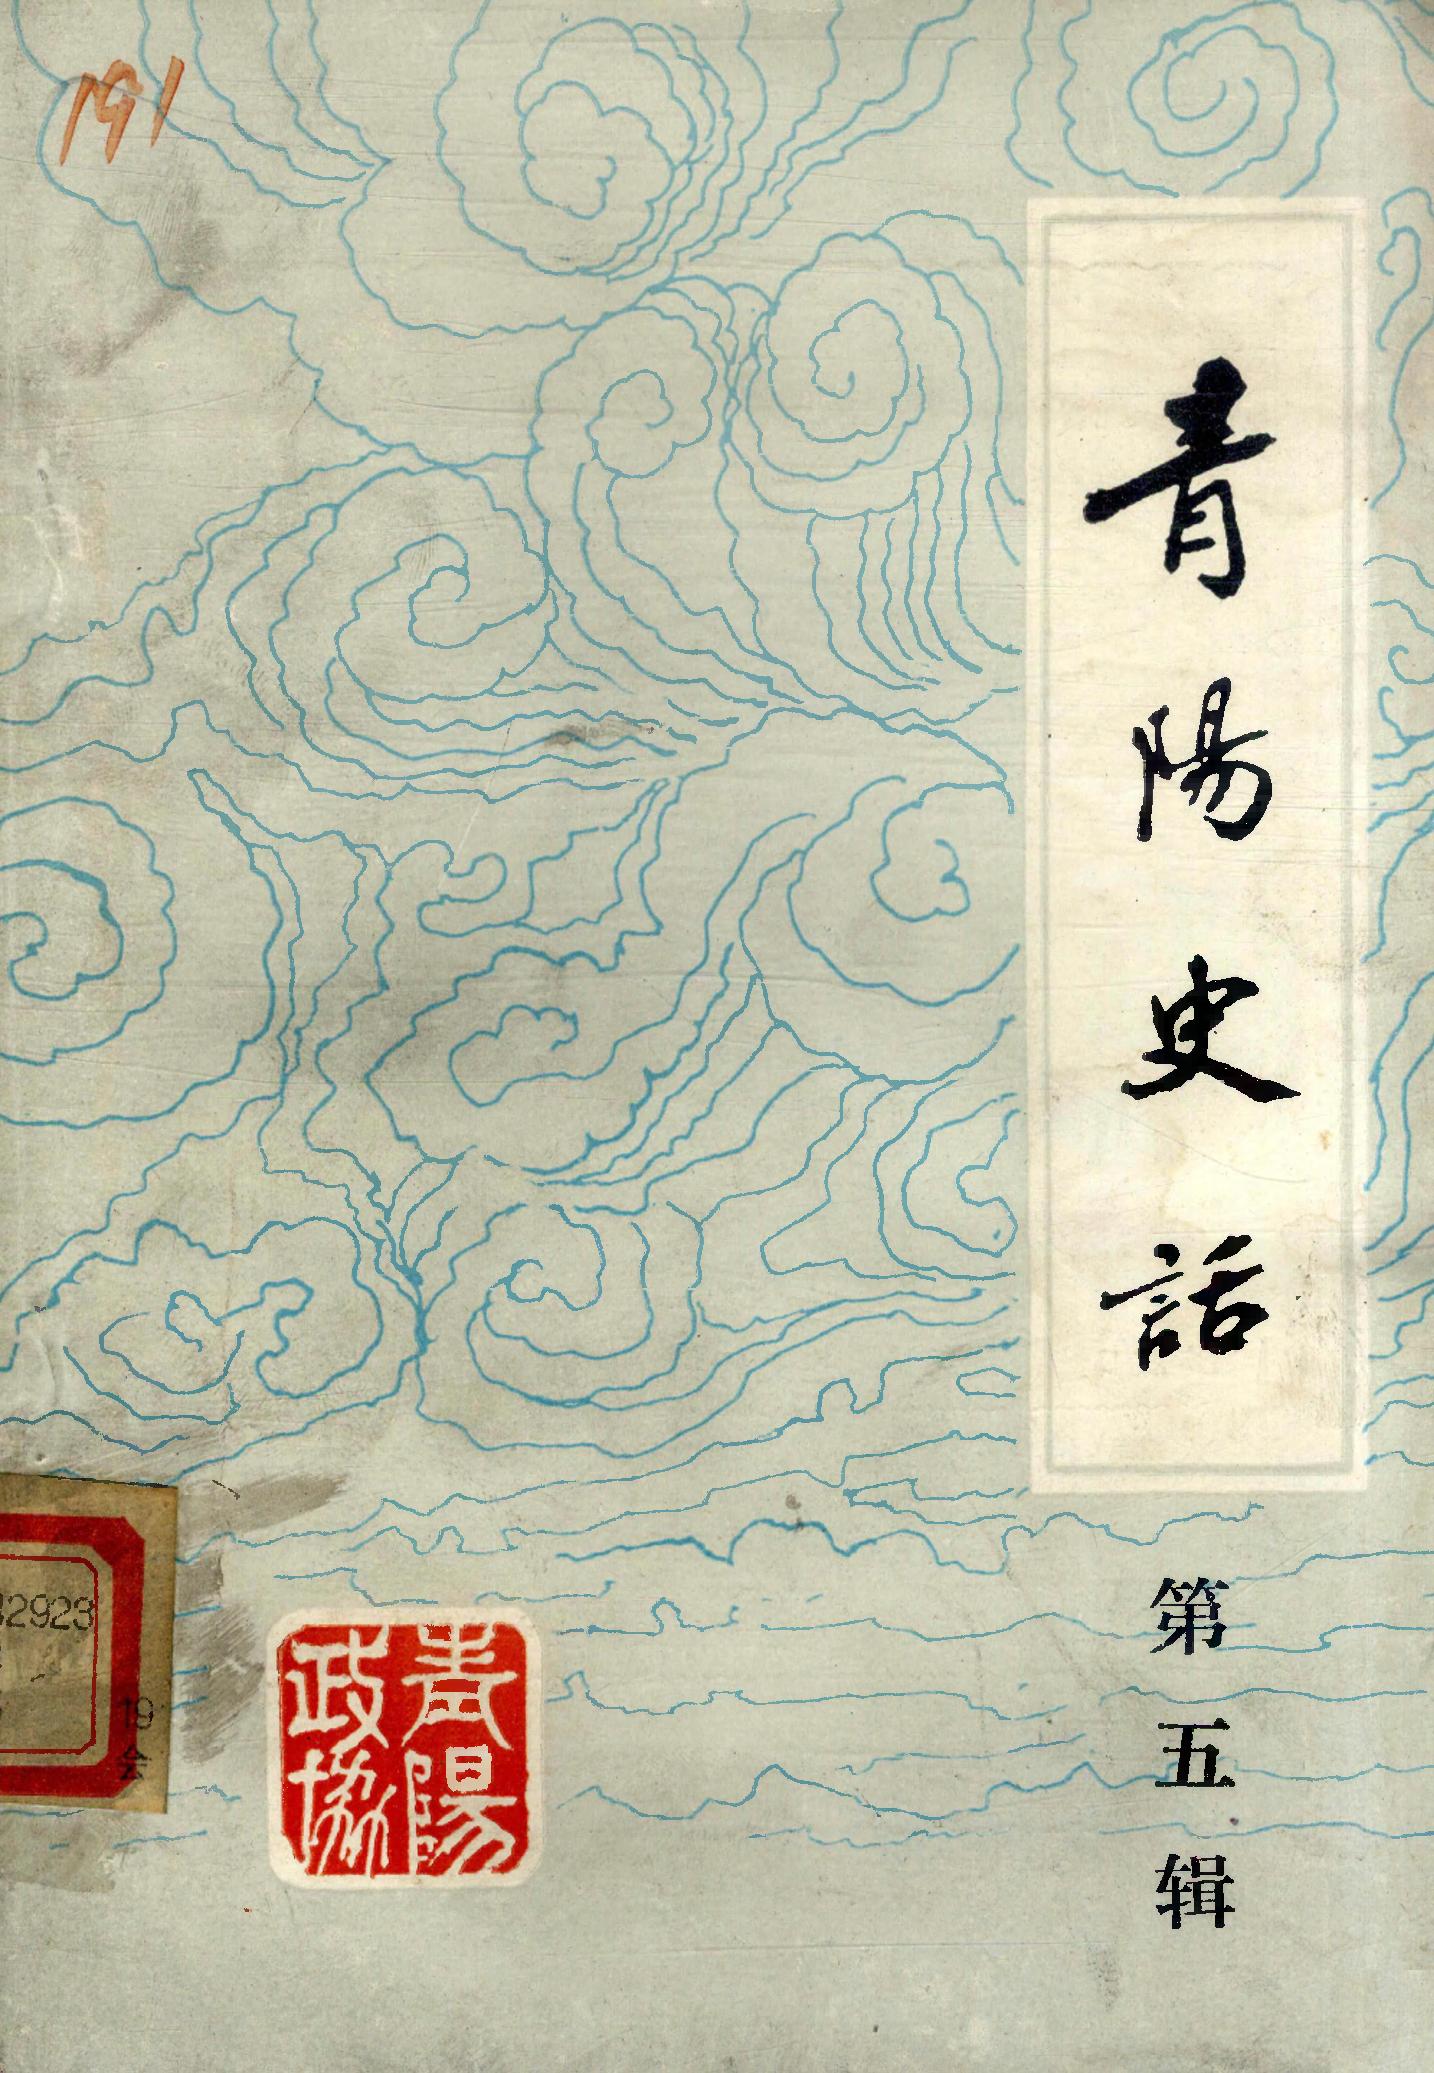 191
青陽史話
第五辑
青陽
政協
32923
19
会